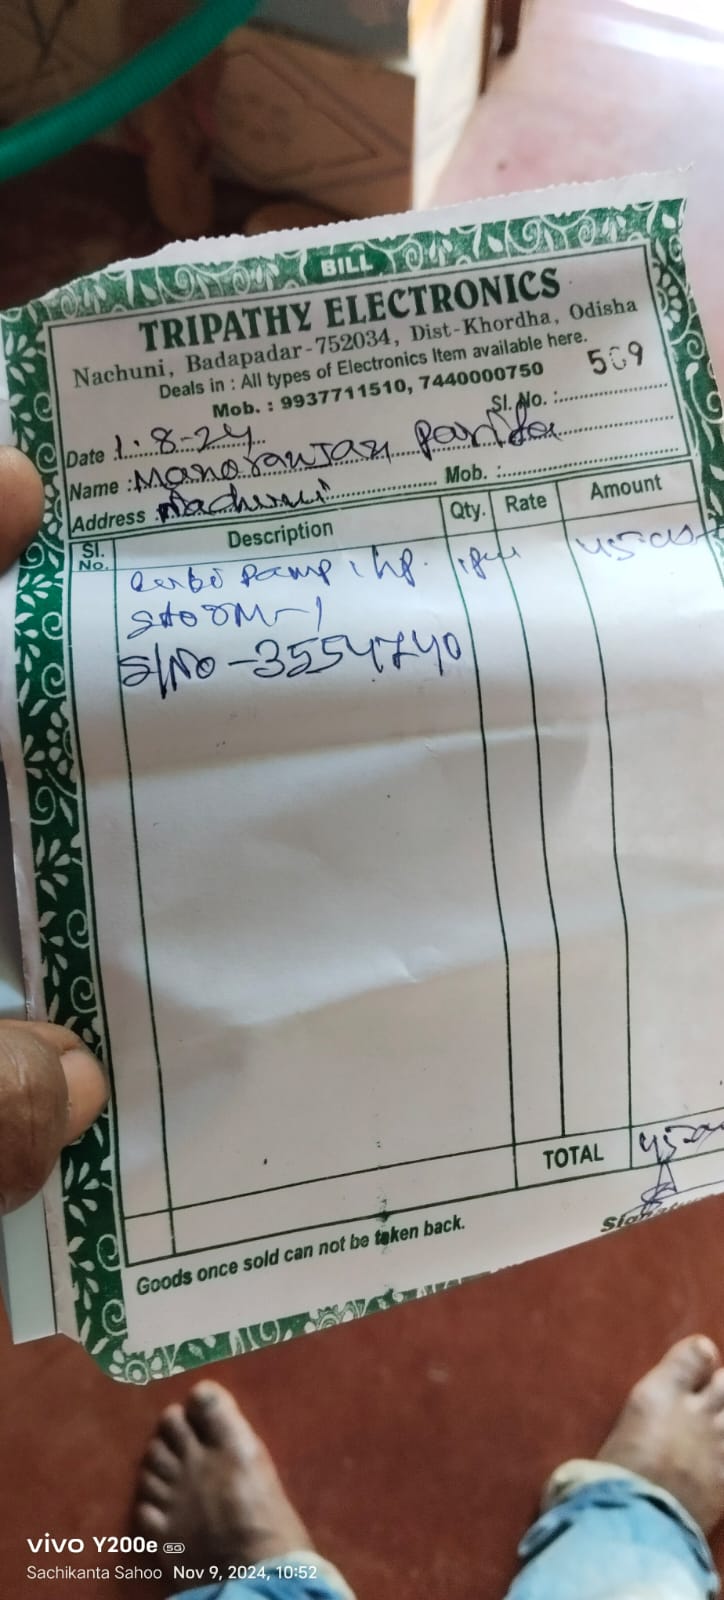 BILL
TRIPATHY ELECTRONICS
Nachuni, Badapadar-752034, Dist-Khordha, Odisha
Deals in : All types of Electronics Item available here.
Mob. : 9937711510, 7440000750
Sl. No. : 509
Date 1.8-24
Name : Manoranjan Parida
Address : Nachuni Mob. :
Sl. No. Description Qty. Rate Amount
Pamp 1 hp.
Storm-1
S/No-3554740
TOTAL
Goods once sold can not be taken back.
vivo Y200e 5G
Sachikanta Sahoo Nov 9, 2024, 10:52